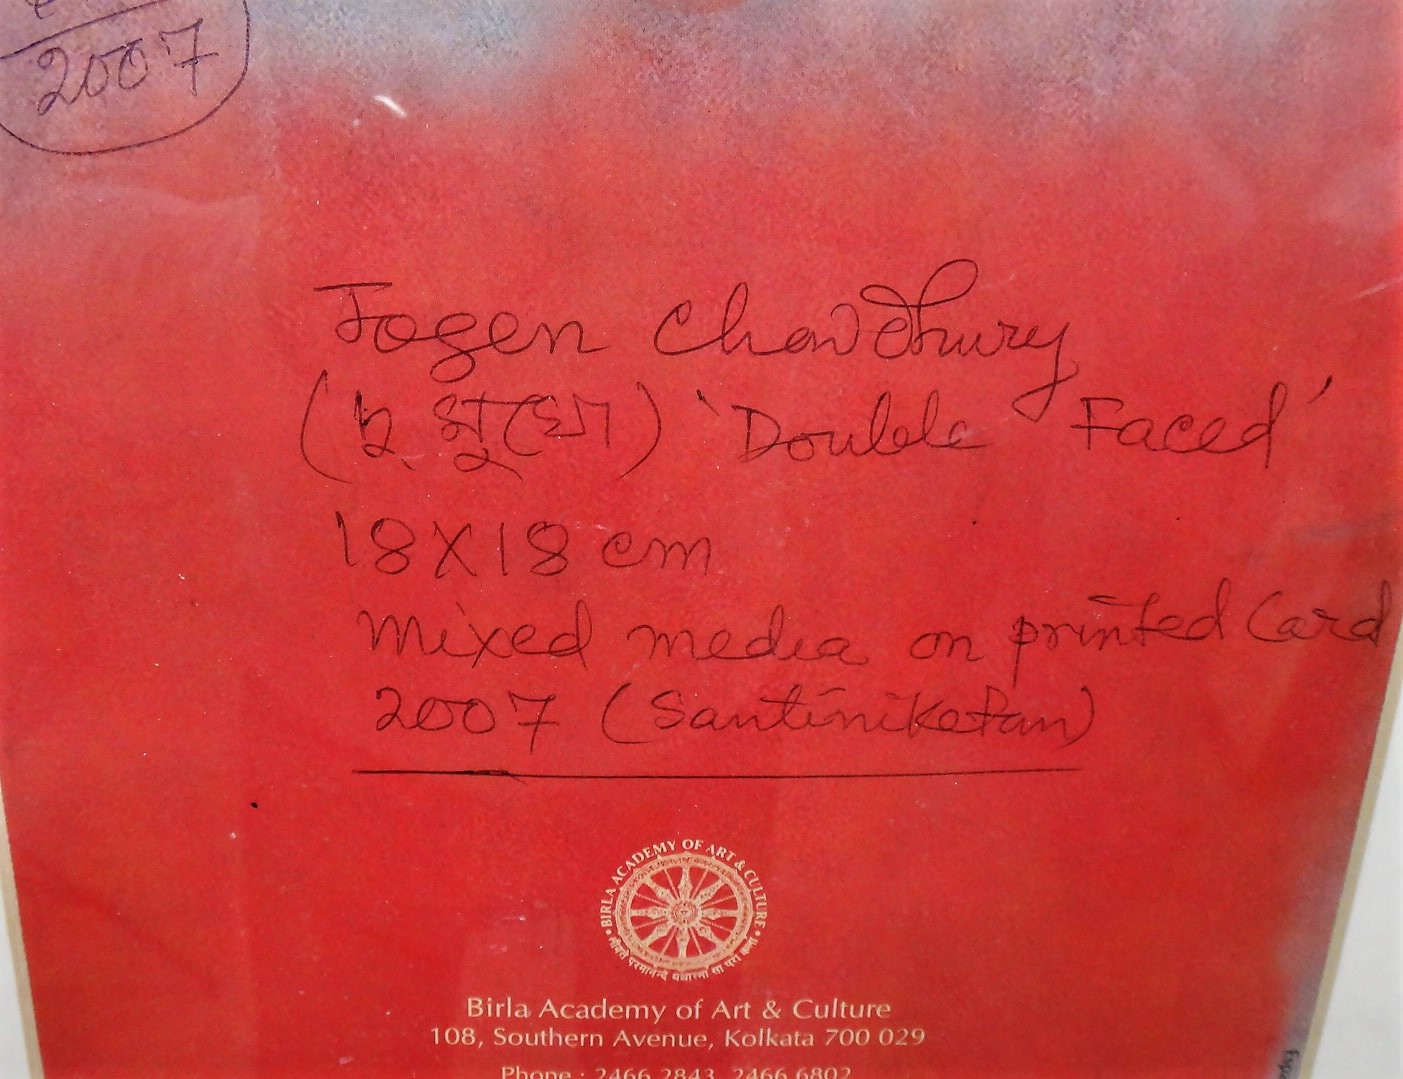 2007
Jogen Chowdhury
(দু মুখো) 'Double Faced'
18X18 cm
Mixed media on printed Card
2007 (Santiniketan)
BIRLA ACADEMY OF ART & CULTURE
Birla Academy of Art & Culture
108, Southern Avenue, Kolkata 700 029
Phone : 2466 2843, 2466 6802